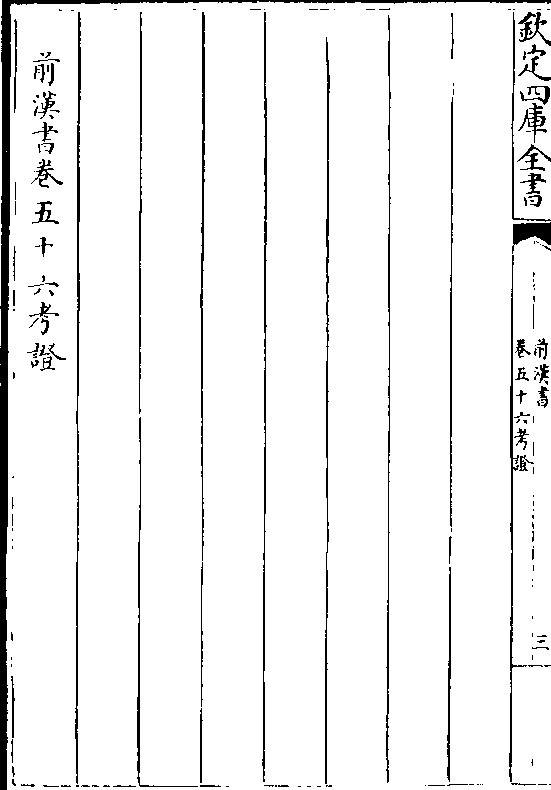 欽定四庫全書
前漢書
卷五十六考證
三
前漢書卷五十六考證